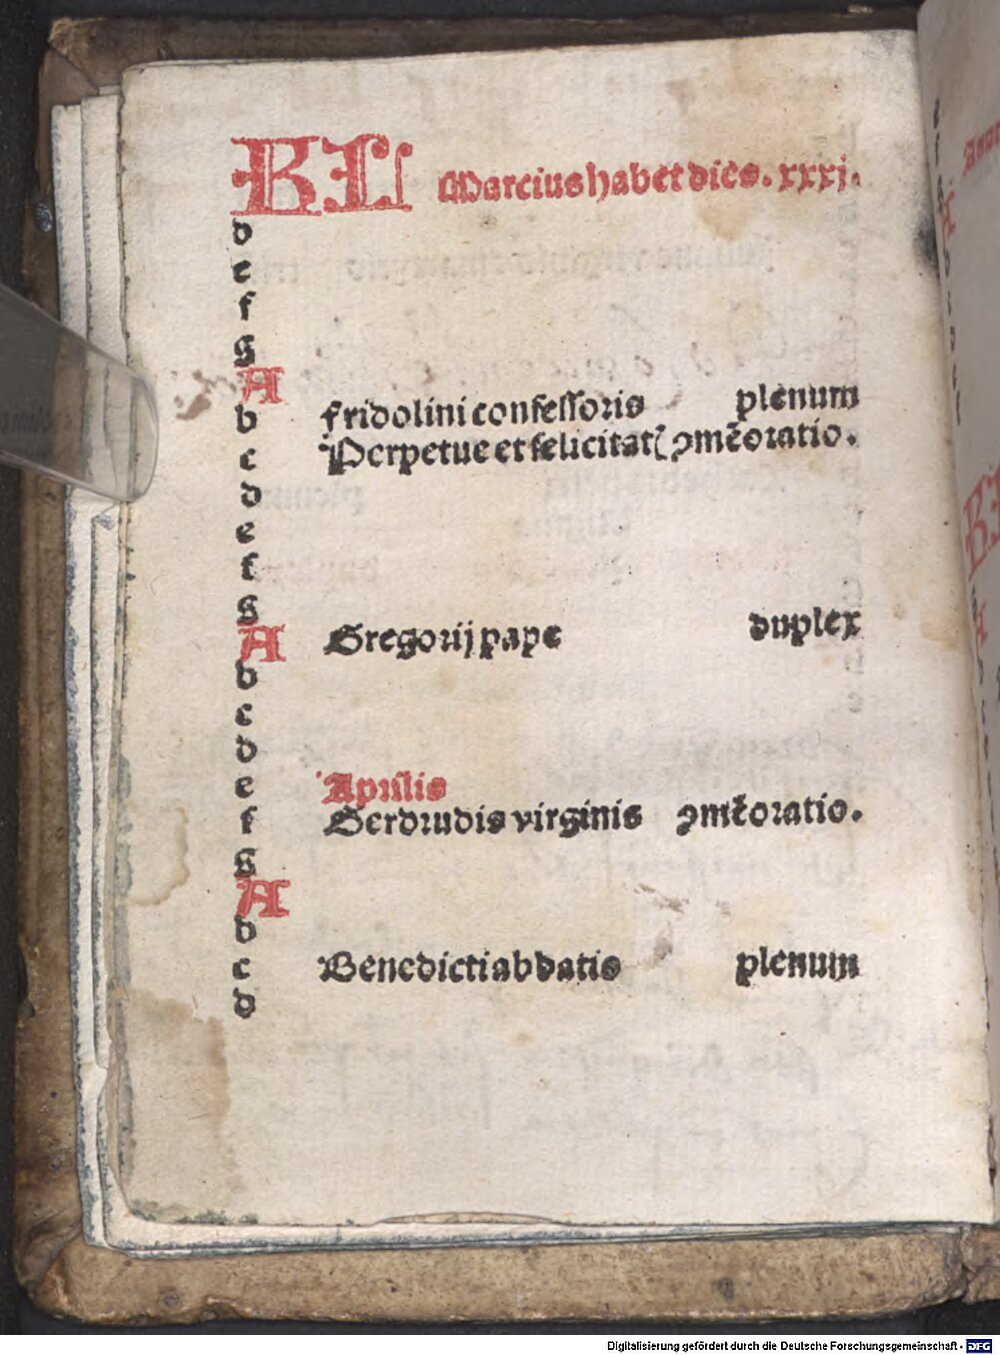 KL Marcius habet dies. xxxj.
d
e
f
g
A
b fridolini confessoris plenum
c Perpetue et felicitatꝭ ꝯmẽoratio.
d
e
f
g
A Gregorij pape duplex
b
c
d
e Aprilis
f Gerdrudis virginis ꝯmẽoratio.
g
A
b
c Benedicti abbatis plenum
d
Digitalisierung gefördert durch die Deutsche Forschungsgemeinschaft - DFG